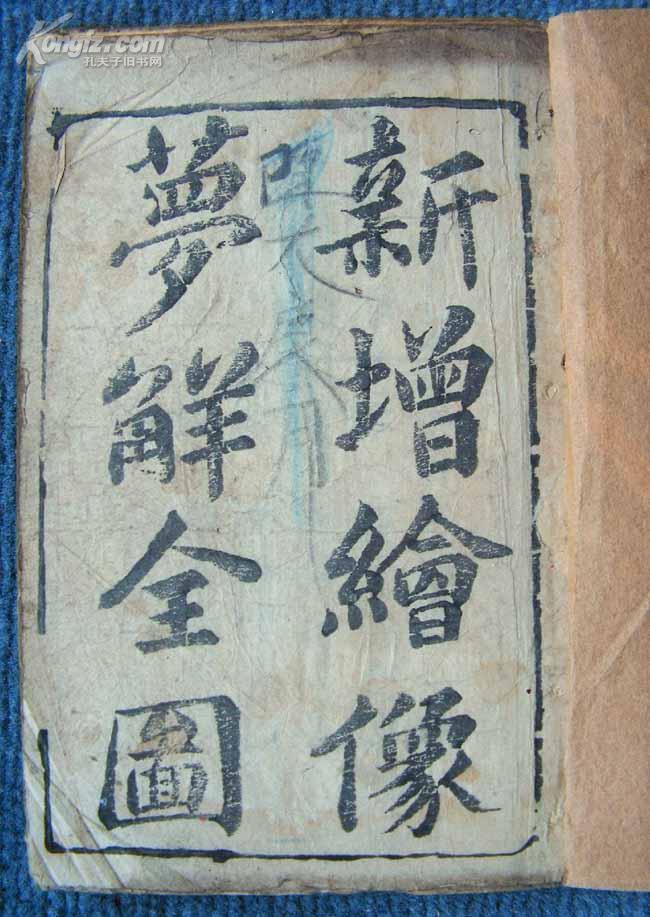 新增繪像
夢觧全圖
Kongfz.com
孔夫子旧书网